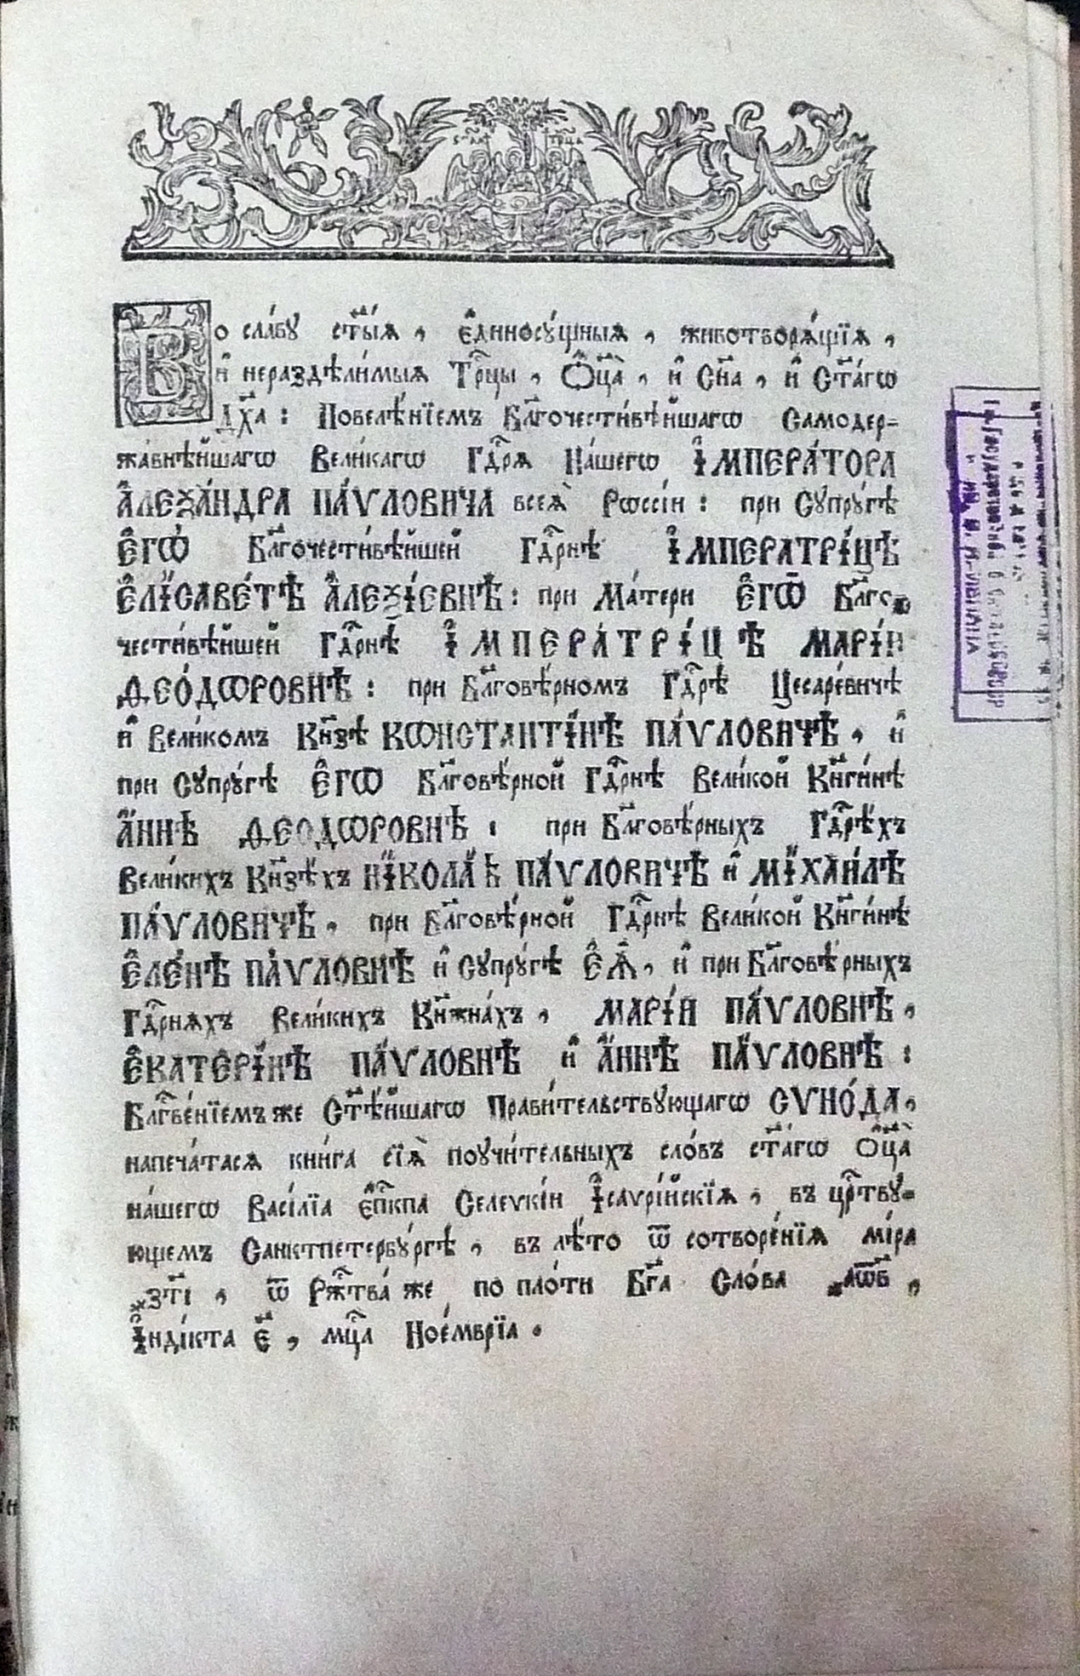 Во сла́вѹ ст҃ы́ѧ , є҆диносѹ́щныѧ , животворѧ́щїѧ ,
и҆ нераздѣли́мыѧ Трⷪ҇цы , Ѻ҆ц҃а̀ , и҆ Сн҃а , и҆ Ст҃а́гѡ
Дх҃а : Повелѣ́нїемъ Благочести́вѣйшагѡ Самодер-
жа́внѣйшагѡ Вели́кагѡ Гдⷭ҇рѧ На́шегѡ І҆МПЕРА́ТОРА
А҆ЛЕѮА́НДРА ПА́ѴЛОВИЧА всеѧ̀ Рѡссі́и : при Сѹпрѹ́гѣ
Є҆ГѠ̀ Бл҃гочести́вѣйшей Гдⷭ҇рнѣ І҆МПЕРАТРІ́ЦѢ
Є҆ЛІСАВЕ́ТѢ А҆ЛЕѮІ́ЕВНѢ : при Ма́тери Є҆ГѠ̀ Бл҃го-
чести́вѣйшей Гдⷭ҇рнѣ І҆МПЕРАТРІ́ЦѢ МАРІ́И
Ѳ҆ЕО́ДѠРОВНѢ : при Бл҃говѣ́рномъ Гдⷭ҇рѣ Цесаре́вичѣ
и҆ Вели́комъ Кн҃зѣ КѠНСТАНТІ́НѢ ПА́ѴЛОВИЧѢ , и҆
при Сѹпрѹ́гѣ Є҆ГѠ Бл҃говѣ́рной Гдⷭ҇рнѣ Вели́кой Кн҃ги́нѣ
А҆́ННѢ Ѳ҆ЕО́ДѠРОВНѢ : при Бл҃говѣ́рныхъ Гдⷭ҇рѣхъ
Вели́кихъ Кн҃зѣ́хъ НІКОЛА́Ѣ ПА́ѴЛОВИЧѢ и҆ МІХАИ́ЛѢ
ПА́ѴЛОВИЧѢ , при Бл҃говѣ́рной Гдⷭ҇рнѣ Вели́кой Кн҃ги́нѣ
Є҆ЛЕ́НѢ ПА́ѴЛОВНѢ и҆ Сѹпрѹ́гѣ Є҆Ѧ̀ , и҆ при Бл҃говѣ́рныхъ
Гдⷭ҇рнѧхъ Вели́кихъ Кн҃жна́хъ , МАРІ́И ПА́ѴЛОВНѢ ,
Є҆КАТЕРІ́НѢ ПА́ѴЛОВНѢ и҆ А҆́ННѢ ПА́ѴЛОВНѢ :
Блгⷭ҇ве́нїемъ же Ст҃ѣ́йшагѡ Прави́тельствѹющагѡ СѴНО́ДА ,
напеча́тасѧ кни́га сїѧ̀ поѹчи́тельныхъ сло́въ ст҃а́гѡ Ѻ҆ц҃а̀
на́шегѡ Васі́лїа є҆пⷭ҇кпа Селеѵкі́и І҆саѵрі́йскїѧ , въ црⷭ҇твѹ-
ющемъ Санктпетербѹ́ргѣ , въ лѣ́то ѿ сотворе́нїѧ мі́ра
҂зт҃і , ѿ Ржⷭ҇тва́ же по пло́ти Бг҃а Сло́ва ҂аѿ҃в ,
І҆нді́кта є҃ , мцⷭ҇а Ное́мврїа .